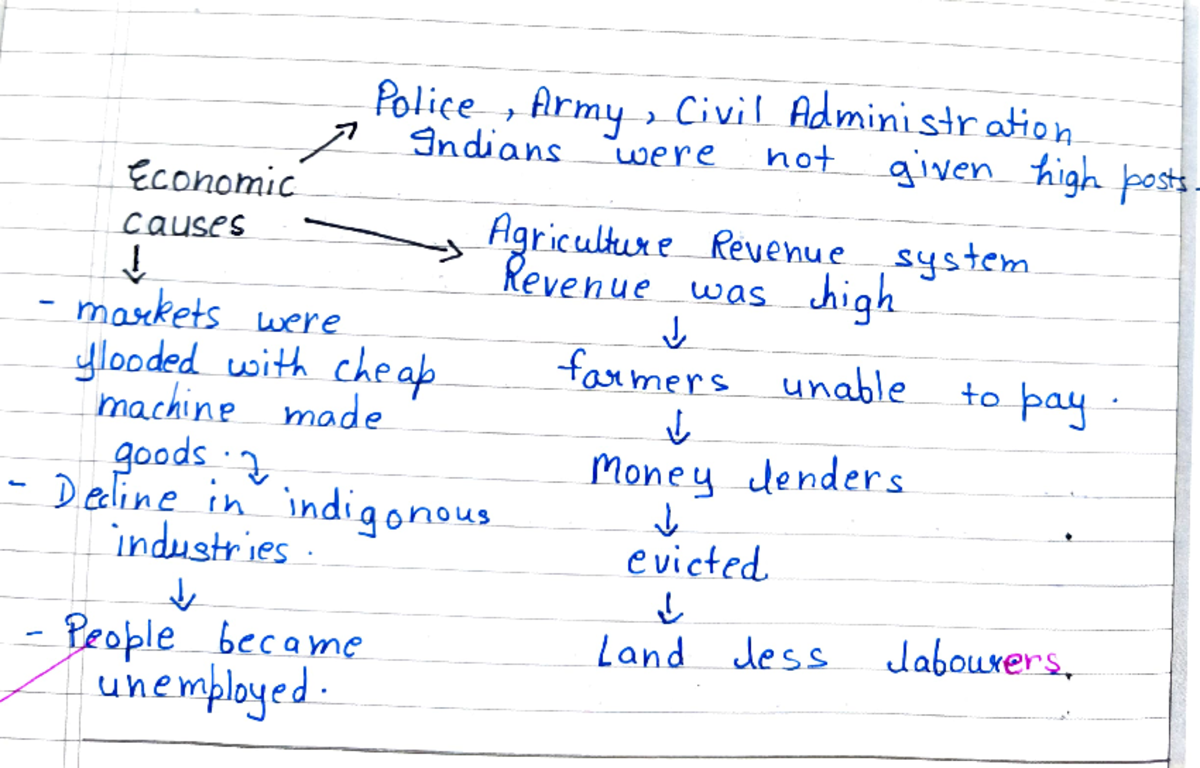 Police, Army, Civil Administration
Indians were not given high posts.
Economic
causes
↓
- markets were
flooded with cheap
machine made
goods.
- Decline in indigonous
industries.
↓
- People became
unemployed.
Agriculture Revenue system
Revenue was high
↓
farmers unable to pay.
↓
Money lenders
↓
evicted
↓
Land less labourers.